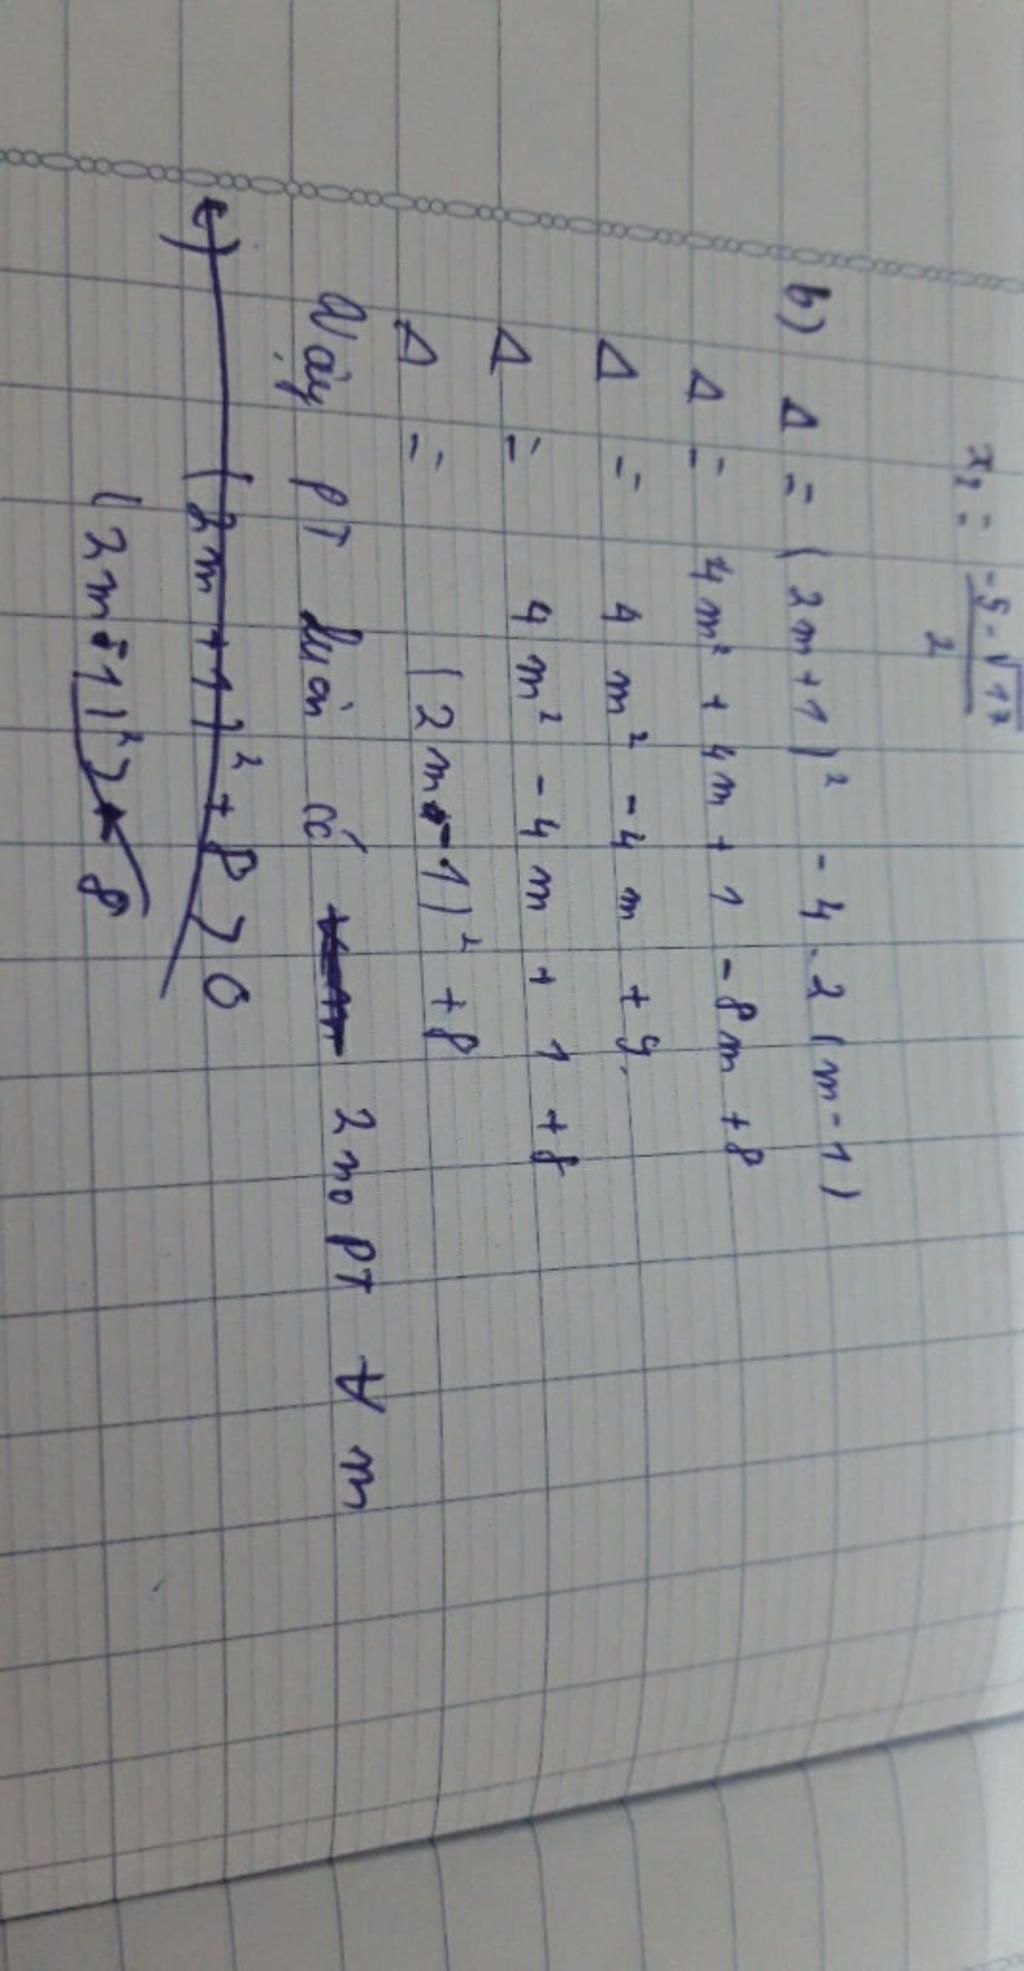 x₂ = (-5 - √17) / 2
b) Δ = (2m+1)² - 4.2(m-1)
Δ = 4m² + 4m + 1 - 8m + 8
Δ = 4m² - 4m + 9
Δ = 4m² - 4m + 1 + 8
Δ = (2m - 1)² + 8
Vậy PT luôn có 2 no PT ∀ m
(2m+1)² + 8 > 0
(2m-1)² > 8